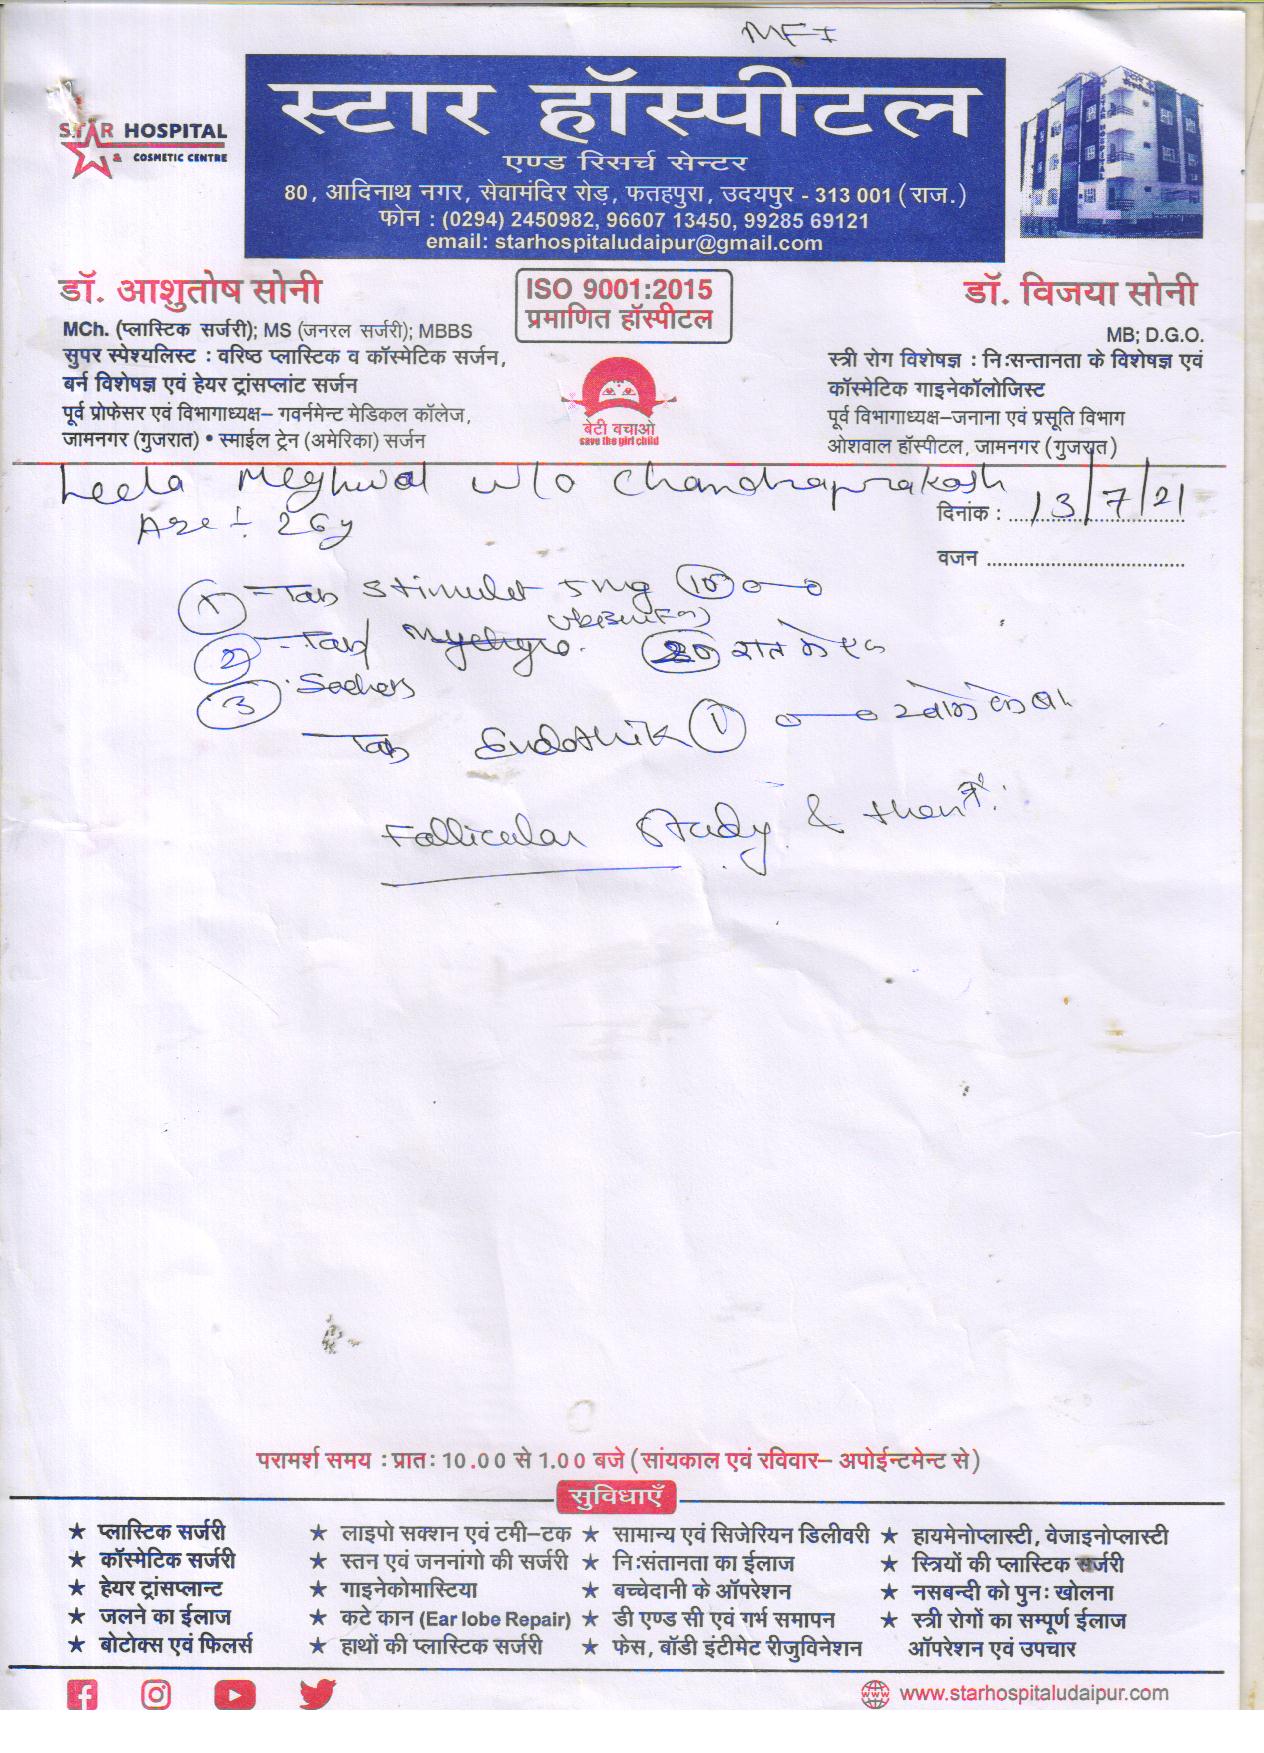 MFI
स्टार हॉस्पीटल
STAR HOSPITAL
& COSMETIC CENTRE
एण्ड रिसर्च सेन्टर
80, आदिनाथ नगर, सेवामंदिर रोड़, फतहपुरा, उदयपुर - 313 001 (राज.)
फोन : (0294) 2450982, 96607 13450, 99285 69121
email: starhospitaludaipur@gmail.com
डॉ. आशुतोष सोनी
MCh. (प्लास्टिक सर्जरी); MS (जनरल सर्जरी); MBBS
सुपर स्पेश्यलिस्ट : वरिष्ठ प्लास्टिक व कॉस्मेटिक सर्जन,
बर्न विशेषज्ञ एवं हेयर ट्रांसप्लांट सर्जन
पूर्व प्रोफेसर एवं विभागाध्यक्ष– गवर्नमेन्ट मेडिकल कॉलेज,
जामनगर (गुजरात) • स्माईल ट्रेन (अमेरिका) सर्जन
ISO 9001:2015
प्रमाणित हॉस्पीटल
बेटी बचाओ
save the girl child
डॉ. विजया सोनी
MB; D.G.O.
स्त्री रोग विशेषज्ञ : निःसन्तानता के विशेषज्ञ एवं
कॉस्मेटिक गाइनेकॉलोजिस्ट
पूर्व विभागाध्यक्ष–जनाना एवं प्रसूति विभाग
ओशवाल हॉस्पीटल, जामनगर (गुजरात)
Leela Meghwal w/o Chandraprakash
दिनांक : 13/7/21
Age :- 26y
वजन
1 - Tab Stimulet 5mg 10
2 - Tab 20 रात को एक
3 Sachets
Tab Endothik 1 खाने के बाद
Follicular Study & then
परामर्श समय : प्रातः 10.00 से 1.00 बजे (सांयकाल एवं रविवार– अपोईन्टमेन्ट से)
सुविधाएँ
★ प्लास्टिक सर्जरी ★ लाइपो सक्शन एवं टमी–टक ★ सामान्य एवं सिजेरियन डिलीवरी ★ हायमेनोप्लास्टी, वेजाइनोप्लास्टी
★ कॉस्मेटिक सर्जरी ★ स्तन एवं जननांगो की सर्जरी ★ निःसंतानता का ईलाज ★ स्त्रियों की प्लास्टिक सर्जरी
★ हेयर ट्रांसप्लान्ट ★ गाइनेकोमास्टिया ★ बच्चेदानी के ऑपरेशन ★ नसबन्दी को पुनः खोलना
★ जलने का ईलाज ★ कटे कान (Ear lobe Repair) ★ डी एण्ड सी एवं गर्भ समापन ★ स्त्री रोगों का सम्पूर्ण ईलाज
★ बोटोक्स एवं फिलर्स ★ हाथों की प्लास्टिक सर्जरी ★ फेस, बॉडी इंटीमेट रीजुविनेशन ऑपरेशन एवं उपचार
www.starhospitaludaipur.com